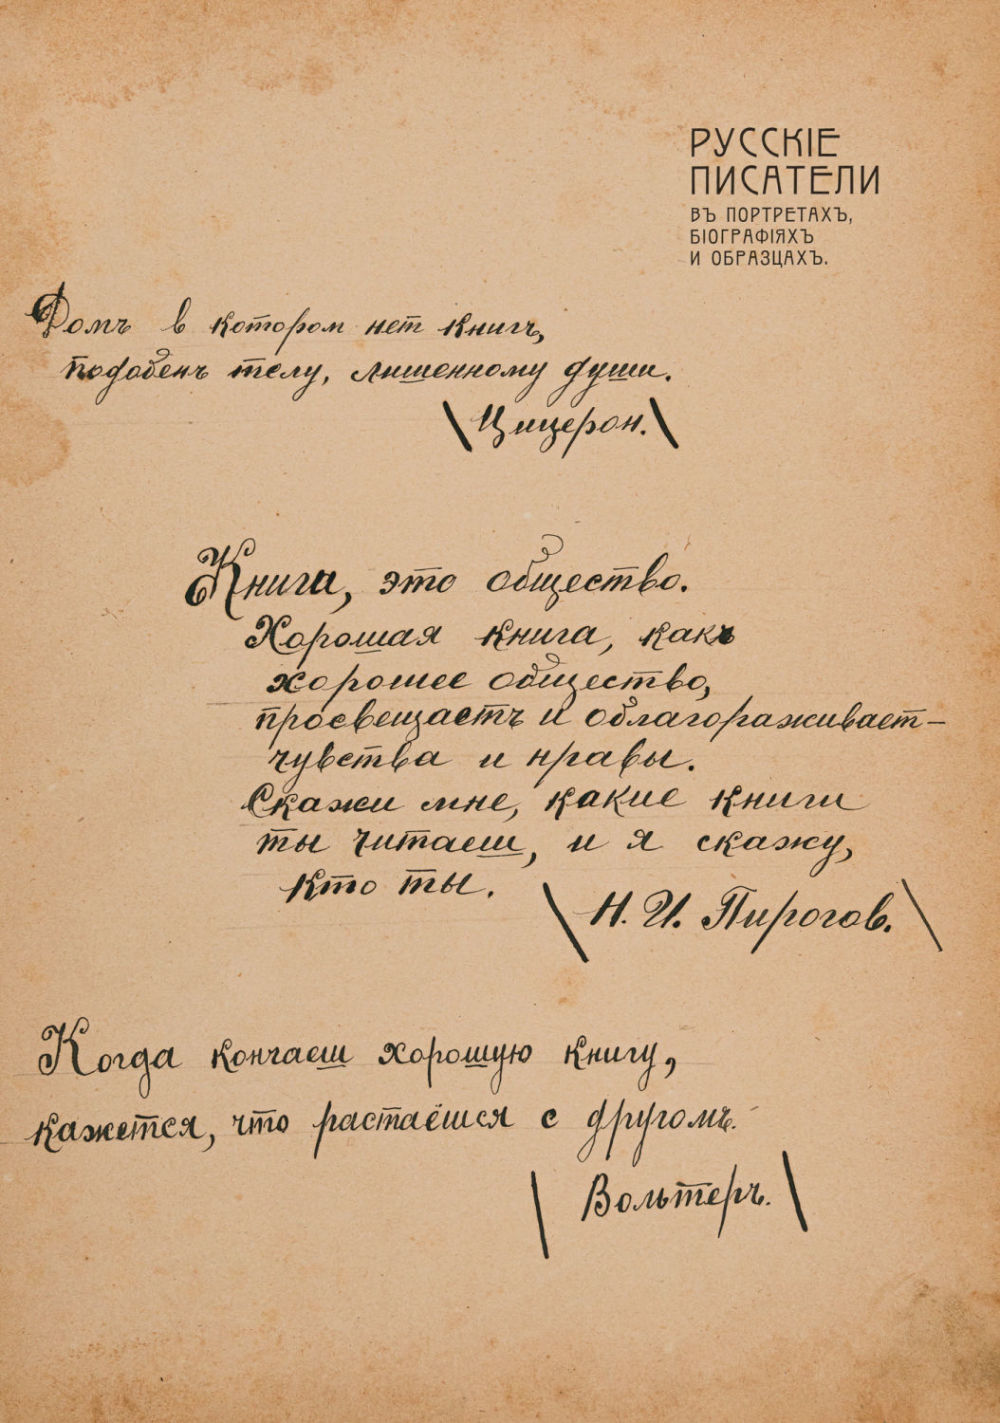 РУССКІЕ
ПИСАТЕЛИ
ВЪ ПОРТРЕТАХЪ,
БІОГРАФІЯХЪ
И ОБРАЗЦАХЪ.
Домъ в котором нет книгъ,
подобенъ телу, лишенному души.
\Цицерон.\
Книга, это общество.
Хорошая книга, какъ
хорошее общество,
просвещаетъ и облагораживает-
чувства и нравы.
Скажи мне, какие книги
ты читаеш, и я скажу,
кто ты.
\Н. И. Пирогов.\
Когда кончаеш хорошую книгу,
кажется, что растаёшся с другомъ.
\Вольтеръ.\